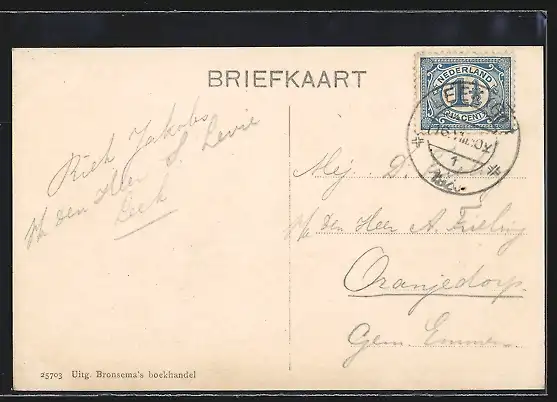 BRIEFKAART
NEDERLAND
1½
Riek Jakobs
p/a den Heer S. Levie
Beek
Mej. D.
p/a den Heer A. Frieling
Oranjedorp.
Gem. Emmen
25703 Uitg. Bronsema's boekhandel